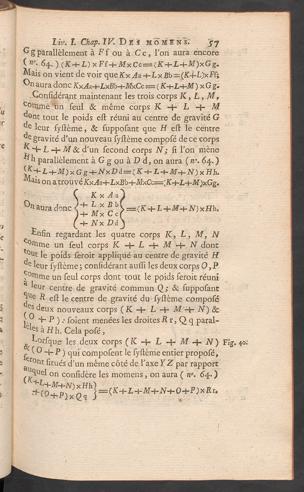 Liv. I. Chap. IV. DES MOMENS. 57
Gg parallèlement à Ff ou à Cc, l'on aura encore
(nº. 64.) (K+L)×Ff+M×Cc=(K+L+M)×Gg.
Mais on vient de voir que K×Aa+L×Bb=(K+L)×Ff;
On aura donc K×Aa+L×Bb+M×Cc=(K+L+M)×Gg.
Considérant maintenant les trois corps K, L, M,
comme un seul & même corps K + L + M
dont tout le poids est réuni au centre de gravité G
de leur système, & supposant que H est le centre
de gravité d'un nouveau système composé de ce corps
K + L + M & d'un second corps N; si l'on mène
Hh parallèlement à Gg ou à Dd, on aura (nº. 64.)
(K+L+M)×Gg+N×Dd=(K+L+M+N)×Hh.
Mais on a trouvé K×Aa+L×Bb+M×Cc=(K+L+M)×Gg.
On aura donc { K × Aa
+ L × Bb
+ M × Cc
+ N × Dd } =(K+L+M+N)×Hh.
Enfin regardant les quatre corps K, L, M, N
comme un seul corps K + L + M + N dont
tout le poids seroit appliqué au centre de gravité H
de leur système; considérant aussi les deux corps O, P
comme un seul corps dont tout le poids seroit réuni
à leur centre de gravité commun Q; & supposant
que R est le centre de gravité du système composé
des deux nouveaux corps (K + L + M + N) &
(O + P): soient menées les droites Rr, Qq paral-
lèles à Hh. Cela posé,
Lorsque les deux corps (K + L + M + N) Fig. 40.
& (O + P) qui composent le système entier proposé,
seront situés d'un même côté de l'axe YZ par rapport
auquel on considère les momens, on aura (nº. 64)
(K+L+M+N)×Hh
+(O+P)×Qq } =(K+L+M+N+O+P)×Rr.